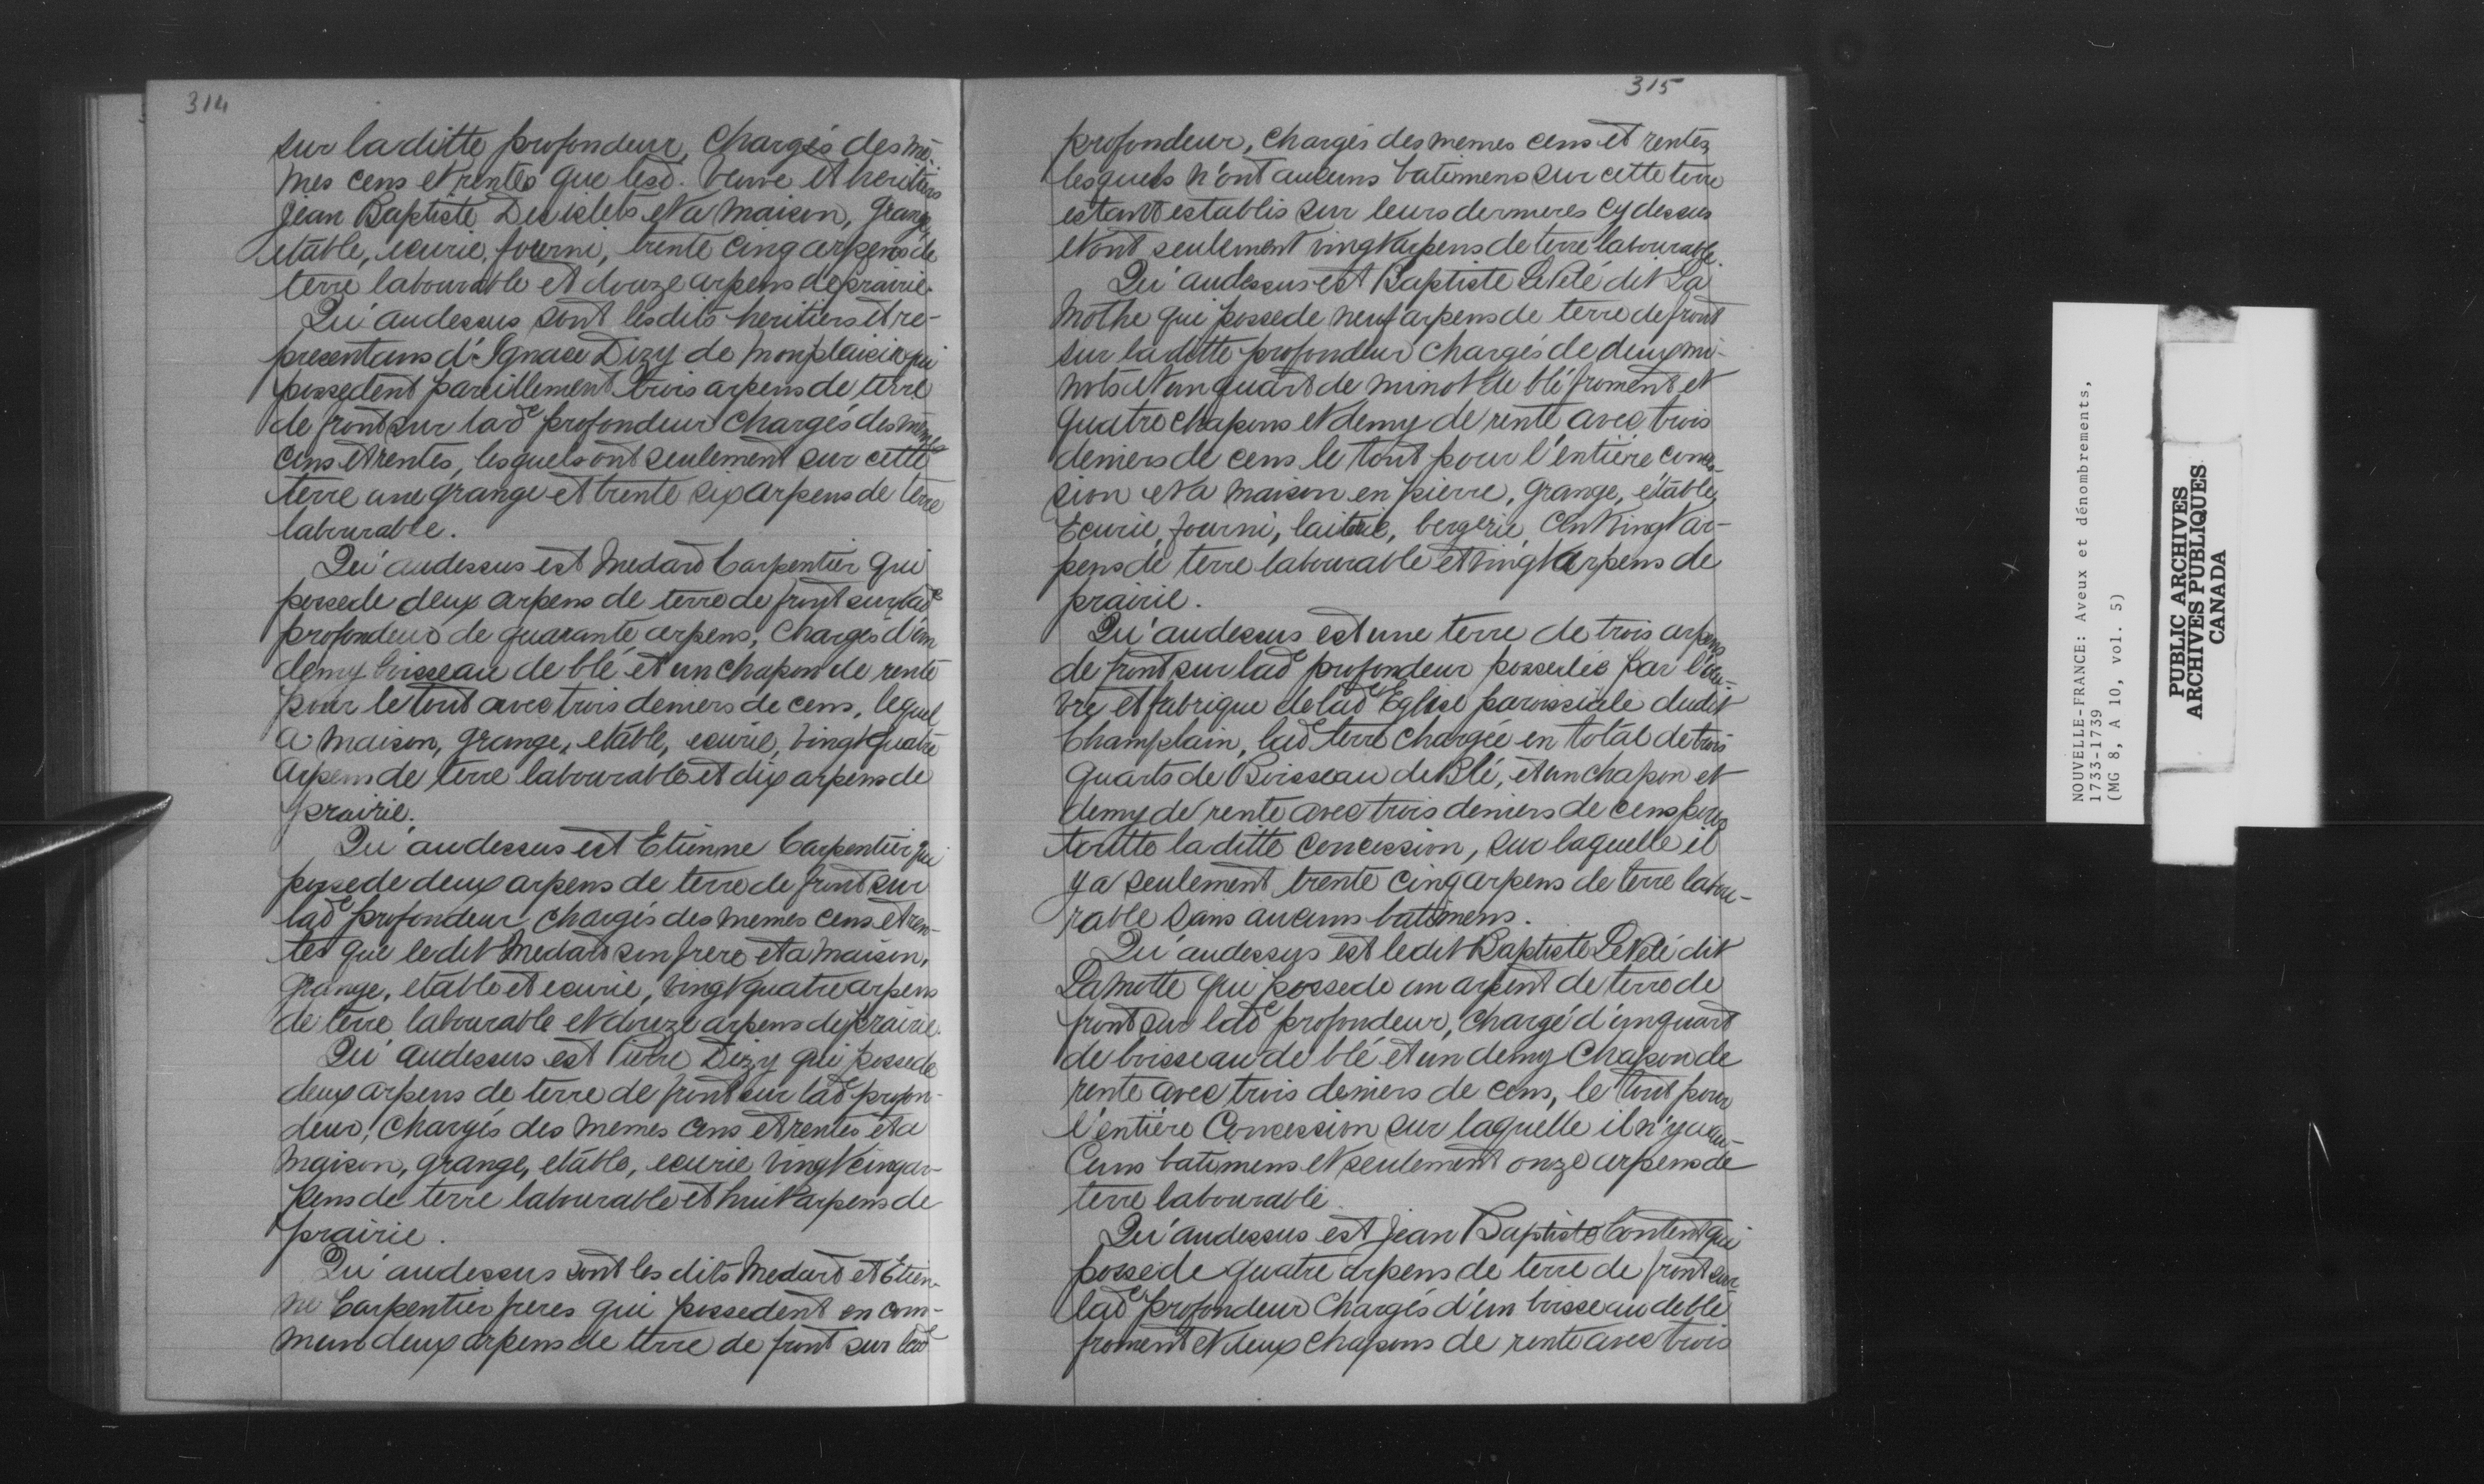 314
sur laditte profondeur, chargés des mê-
mes cens et rentes que lesd. veuve et heritiers
Jean Baptiste Desislets et a maison, grange,
etable, ecurie, fourni, trente cinq arpens de
terre labourable et douze arpens de prairie.
Qu'audessus sont lesdits heritiers et re-
presentans d'Ignace Dizy de Monplaisir qui
possedent pareillement trois arpens de terre
de front sur lade profondeur chargés des mêmes
cens et rentes, lesquels ont seulement sur cette
terre une grange et trente six arpens de terre
labourable.
Qu'audessus est Medard Carpentier qui
possede deux arpens de terre de front sur lade
profondeur de quarante arpens, chargés d'un
demy boisseau de blé et un chapon de rente
pour le tout avec trois deniers de cens, lequel
a maison, grange, etable, ecurie, vingt quatre
arpens de terre labourable et dix arpens de
prairie.
Qu'audessus est Etienne Carpentier qui
possede deux arpens de terre de front sur
lade profondeur chargés des memes cens et ren-
tes que ledit Medard son frere et a maison,
grange, etable et ecurie, vingt quatre arpens
de terre labourable et douze arpens de prairie.
Qu'audessus est Pierre Dizy qui possede
deux arpens de terre de front sur lade profon-
deur, chargés des memes cens et rentes et a
maison, grange, etable, ecurie vingt cinq ar-
pens de terre labourable et huit arpens de
prairie.
Qu'audessus sont les dits Medard et Etien-
ne Carpentier freres qui possedent en com-
mun deux arpens de terre de front sur lade
315
profondeur, chargés des memes cens et rentes,
lesquels n'ont aucuns batimens sur cette terre
estant establis sur leurs dernieres cy dessus
et ont seulement vingt arpens de terre labourable.
Qu'audessus est Baptiste Le Pelé dit La
Mothe qui possede neuf arpens de terre de front
sur laditte profondeur chargés de deux mi-
nots et un quart de minot de blé froment et
quatre chapons et demy de rente avec trois
deniers de cens le tout pour l'entière conces-
sion et a maison en pierre, grange, étable,
Ecurie, fourni, laiterie, bergerie, cent vingt ar-
pens de terre labourable et vingt arpens de
prairie.
Qu'audessus est une terre de trois arpens
de front sur lade profondeur possedée par l'œu-
vre et fabrique de lade Eglise paroissiale dudit
Champlain, lade terre chargée en total de trois
quarts de Boisseau de Blé, et un chapon et
demy de rente avec trois deniers de cens pour
toutte laditte concession, sur laquelle il
y a seulement trente cinq arpens de terre labou-
rable sans aucuns batimens.
Qu'audessus est ledit Baptiste Le Pelé dit
Lamotte qui possede un arpent de terre de
front sur lade profondeur, chargé d'un quart
de boisseau de blé et un demy chapon de
rente avec trois deniers de cens, le tout pour
l'entière Concession sur laquelle il n'y a au-
cuns batimens et seulement onze arpens de
terre labourable.
Qu'audessus est Jean Baptiste Content qui
possede quatre arpens de terre de front sur
lade profondeur chargés d'un boisseau de blé
froment et deux chapons de rente avec trois
NOUVELLE-FRANCE: Aveux et dénombrements,
1733-1739
(MG 8, A 10, vol. 5)
PUBLIC ARCHIVES
ARCHIVES PUBLIQUES
CANADA